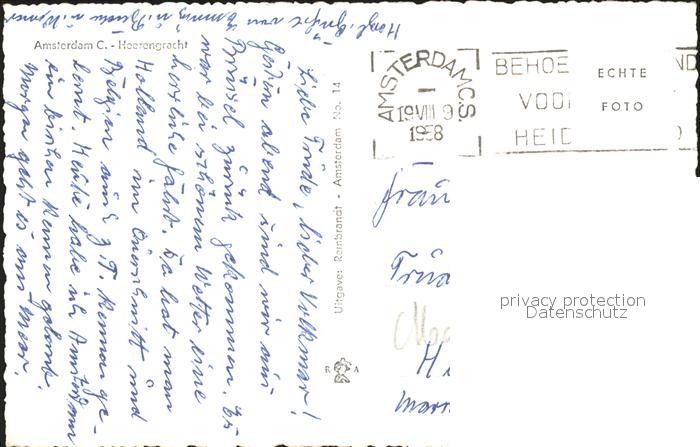 Amsterdam C. - Heerengracht
Herzl. Grüße von
Liebe Trude, lieber Volkmar!
Gestern abend sind wir aus
Brüssel zurück gekommen. Es
war bei schönem Wetter eine
herrliche Fahrt. So hat man
Holland im Querschnitt und
Belgien auch z. T. kennen ge-
lernt. Heute habe ich Amsterdam
ein bischen kennen gelernt.
Morgen geht es ans Meer.
Uitgave: Rembrandt - Amsterdam No. 14
R A
AMSTERDAM C.S.
19 VIII 9
1958
BEHOE
VOO
HEID
ND
ECHTE
FOTO
Frau
Trud
privacy protection
Datenschutz